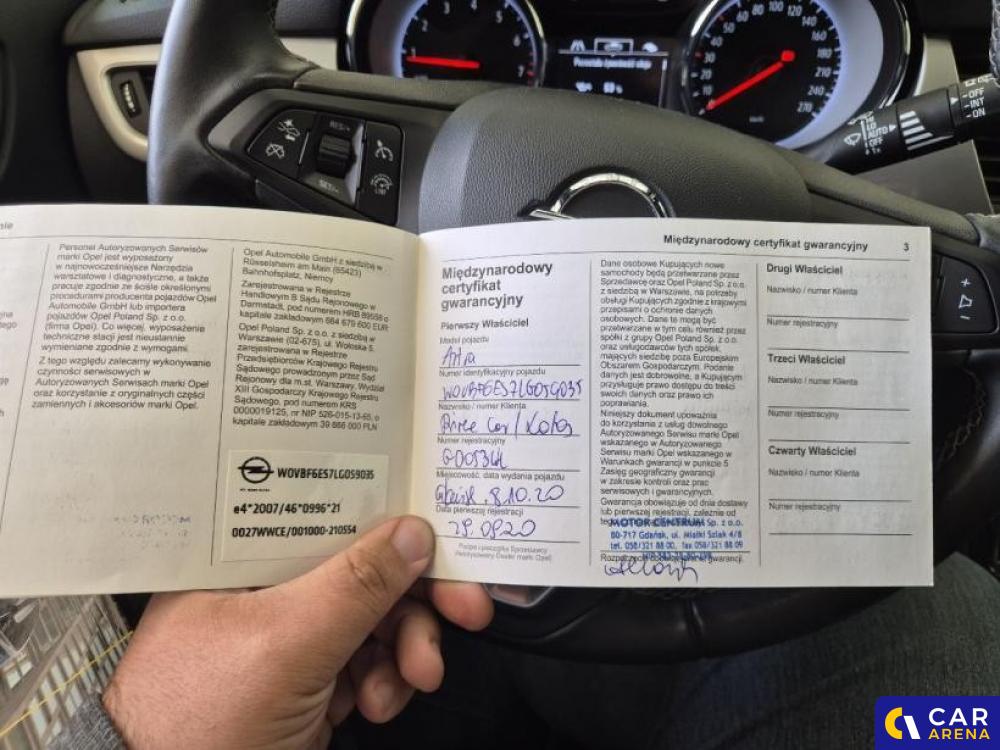 Personel Autoryzowanych Serwisów
marki Opel jest wyposażony
w najnowocześniejsze Narzędzia
warsztatowe i diagnostyczne, a także
pracuje zgodnie ze ściśle określonymi
procedurami producenta pojazdów Opel
Automobile GmbH lub importera
pojazdów Opel Poland Sp. z o.o.
(firma Opel). Co więcej, wyposażenie
techniczne stacji jest nieustannie
wymieniane zgodnie z wymogami.
Z tego względu zalecamy wykonywanie
czynności serwisowych w
Autoryzowanych Serwisach marki Opel
oraz korzystanie z oryginalnych części
zamiennych i akcesoriów marki Opel.
Opel Automobile GmbH z siedzibą w
Rüsselsheim am Main (65423)
Bahnhofsplatz, Niemcy
Zarejestrowana w Rejestrze
Handlowym B Sądu Rejonowego w
Darmstadt, pod numerem HRB 89558 o
kapitale zakładowym 684 679 600 EUR
Opel Poland Sp. z o.o. z siedzibą w
Warszawie (02-675), ul. Wołoska 5.
zarejestrowana w Rejestrze
Przedsiębiorców Krajowego Rejestru
Sądowego prowadzonym przez Sąd
Rejonowy dla m.st. Warszawy, Wydział
XIII Gospodarczy Krajowego Rejestru
Sądowego, pod numerem KRS
0000019125, nr NIP 526-015-13-65, o
kapitale zakładowym 39 866 000 PLN
W0VBF6ES7LG059035
e4*2007/46*0996*21
0027WWCE/001000-210554
Międzynarodowy certyfikat gwarancyjny 3
Międzynarodowy
certyfikat
gwarancyjny
Pierwszy Właściciel
Model pojazdu
Astra
Numer identyfikacyjny pojazdu
W0VBF6ES7LG059035
Nazwisko / numer Klienta
Numer rejestracyjny
Miejscowość, data wydania pojazdu
Gdańsk, 8.10.20
Data pierwszej rejestracji
29.09.20
Podpis i pieczątka Sprzedawcy
(Autoryzowany Dealer marki Opel)
Dane osobowe Kupujących nowe
samochody będą przetwarzane przez
Sprzedawcę oraz Opel Poland Sp. z o.o.
z siedzibą w Warszawie, na potrzeby
obsługi Kupujących zgodnie z krajowymi
przepisami o ochronie danych
osobowych. Dane te mogą być
przetwarzane w tym celu również przez
spółki z grupy Opel Poland Sp. z o.o.
oraz usługodawców tych spółek,
mających siedzibę poza Europejskim
Obszarem Gospodarczym. Podanie
danych jest dobrowolne, a Kupującym
przysługuje prawo dostępu do treści
swoich danych oraz prawo ich
poprawiania.
Niniejszy dokument upoważnia
do korzystania z usług dowolnego
Autoryzowanego Serwisu marki Opel
wskazanego w Autoryzowanego
Serwisu marki Opel wskazanego w
Warunkach gwarancji w punkcie 5
Zasięg geograficzny gwarancji
w zakresie kontroli oraz prac
serwisowych i gwarancyjnych.
Gwarancja obowiązuje od dnia dostawy
lub pierwszej rejestracji, zależnie od
MOTOR CENTRUM Sp. z o.o.
80-717 Gdańsk, ul. Miałki Szlak 4/8
tel. 058/321 88 00, fax 058/321 88 09
Drugi Właściciel
Nazwisko / numer Klienta
Numer rejestracyjny
Trzeci Właściciel
Nazwisko / numer Klienta
Numer rejestracyjny
Czwarty Właściciel
Nazwisko / numer Klienta
Numer rejestracyjny
RES/+
SET/-
OFF
INT
ON
HI
LO
AUTO
OFF
1x
CAR
ARENA